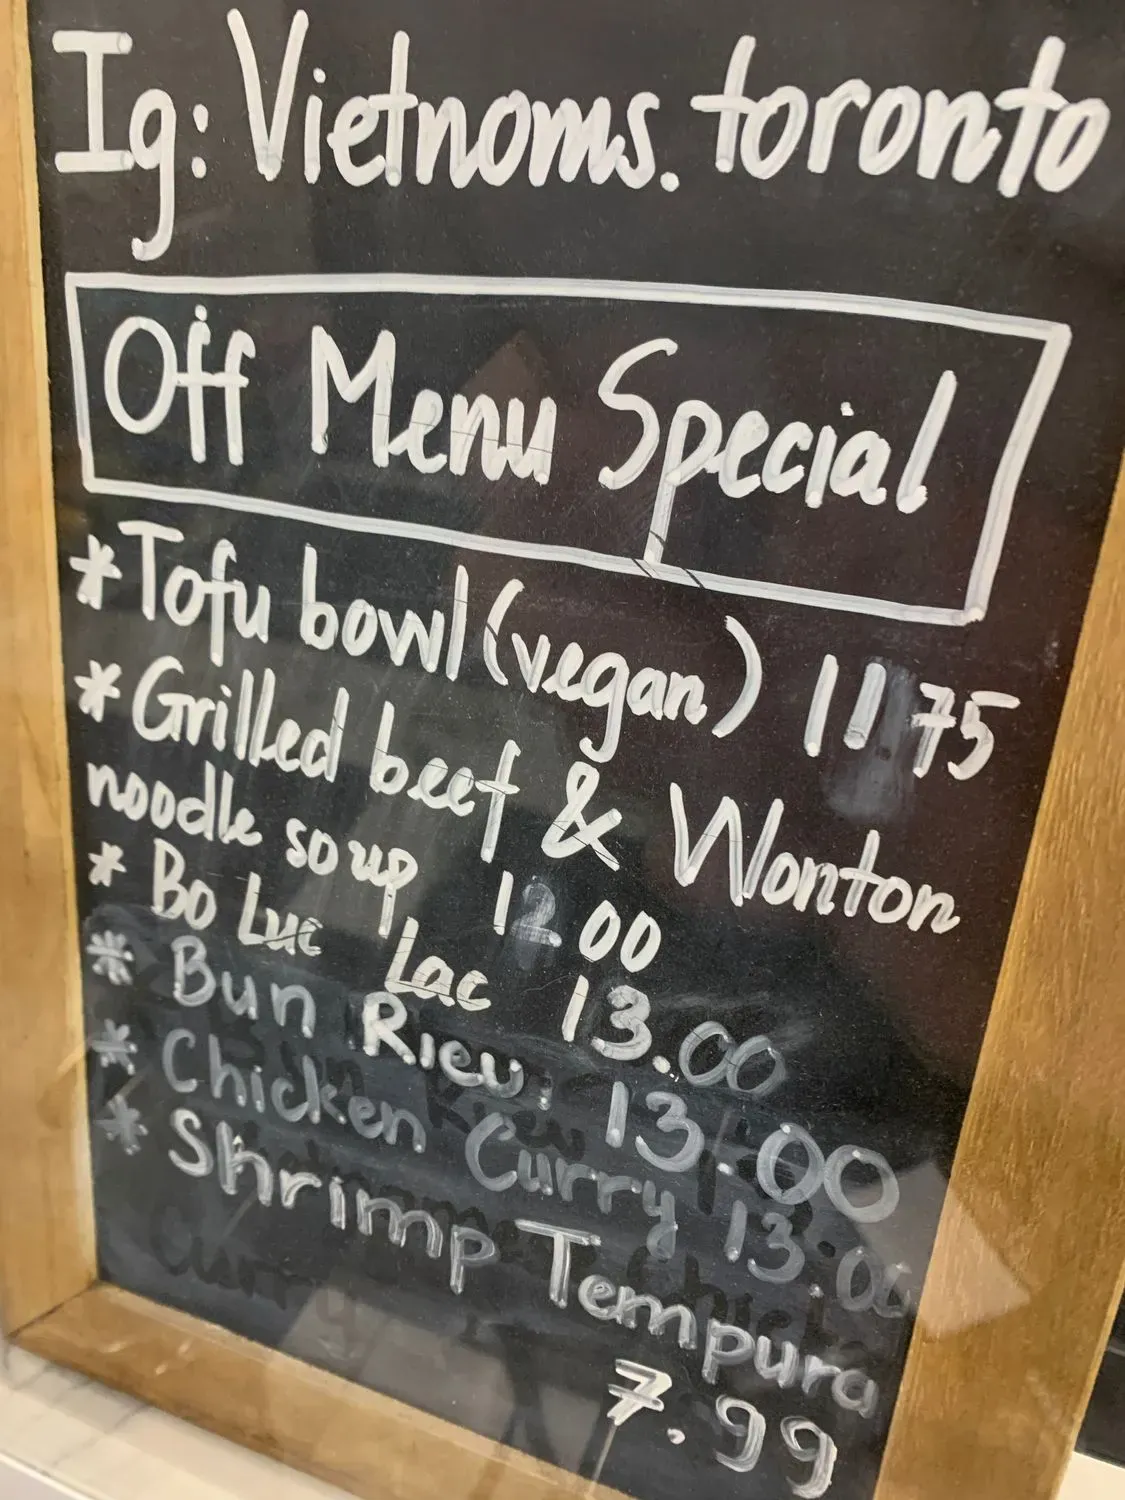 Ig: Vietnoms.toronto
Off Menu Special
* Tofu bowl (vegan) 11 75
* Grilled beef & Wonton
noodle soup 12 00
* Bo Luc Lac 13.00
* Bun Rieu: 13.00
* Chicken Curry 13.00
* Shrimp Tempura
7.99